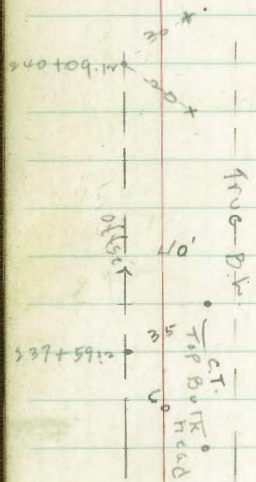 20
240+09.12
20
True B.L.
Offset
40'
35
237+59.12
C.T.
Top Bulk
head
60